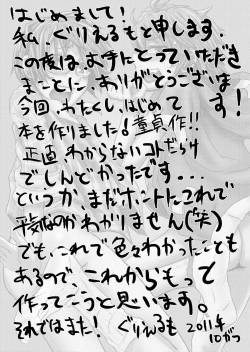 はじめまして!
私、ぐりえるもと申します。
この度は、お手にとっていただき
まことに、ありがとうございます!
今回、わたくし、はじめて
本を作りました!童貞作!!
正直、わからないコトだらけ
でしんどかったです...
というか、まだホントにこれで
平気なのかわかりません(笑)
でも、これで色々わかったことも
あるので、これからもって
作ってこうと思います。
それではまた! ぐりえるも 2011年
10がつ